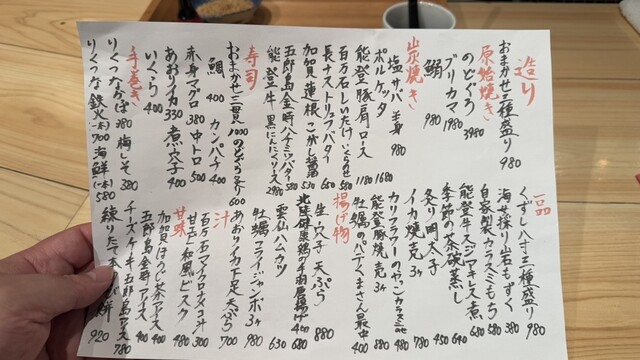 造り
おまかせ三種盛り 980
原始焼き
のどぐろ 3980
ブリカマ 1980
鰯 980
炭焼き
塩サバ 半身 980
ポルケッタ 1680
能登豚肩ロース 1180
百万石しいたけ いくらのせ 580
長ナス トリュフバター 650
加賀蓮根 こがし醤油 530
五郎島金時 ハチミツバター 580
能登牛 黒にんにくソース 2980
寿司
おまかせ三貫 1000 のどぐろ炙り 600
鯛 400 カンパチ 400
赤身マグロ 380 中トロ 500
あおりイカ 330 煮穴子 400
いくら 400
手巻き
りくつなかっぱ 380 梅しそ 380
りくつな鉄火(一本) 700 海鮮(一本) 580
一品
くずし八寸三種盛り 980
海女採り岩もずく 380
自家製カラスミもち 580
能登牛スジマキレス煮 680
季節の茶碗蒸し 640
炙り明太子 450
イカ焼売 3ヶ 780
能登豚焼売 3ヶ 480
カリフラワーのムース カラスミのせ 880
牡蠣のパテ くまさん最中 400
揚げ物
生穴子天ぷら 880
北陸健康鶏の手羽唐揚げ 400
雲仙ハムカツ 680
牡蠣フライ ジャンボ 3ヶ 980
あおりイカ下足天ぷら 700
汁
百万石マイクロズコ汁 300
甘エビ和風ビスク 480
甘味
加賀ほうじ茶アイス 400
五郎島金時アイス 400
チーズケーキ 五郎島アイス 780
練りたて 920